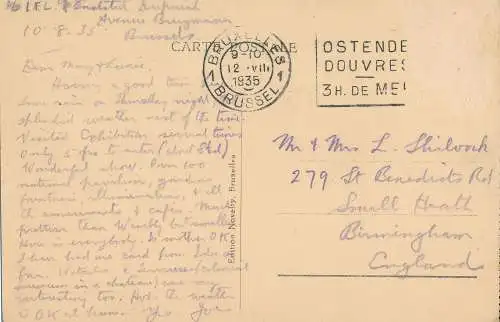 10.8.35
Brussels
CARTE POSTALE
BRUXELLES
9-10
12 VIII
1935
1 BRUSSEL 1
OSTENDE
DOUVRES
3H. DE ME
Having a good time
rain on Thursday night,
splendid weather rest of the time.
Visited Exhibition several times
Only 5 frs to enter
Wonderful show. Over 100
national pavilion, gardens
fountains, illuminations, & all
the amusements & cafes. Much
prettier than Wembly but smaller
Here is everybody. Is mother OK
I have had one card from
museum in a chateau) was very
interesting too. Hope the weather
is OK at home. Yrs Joe
Edition Novelty, Bruxelles
Mr & Mrs L. Shilvock
279 St Benedicts Rd
Small Heath
Birmingham
England